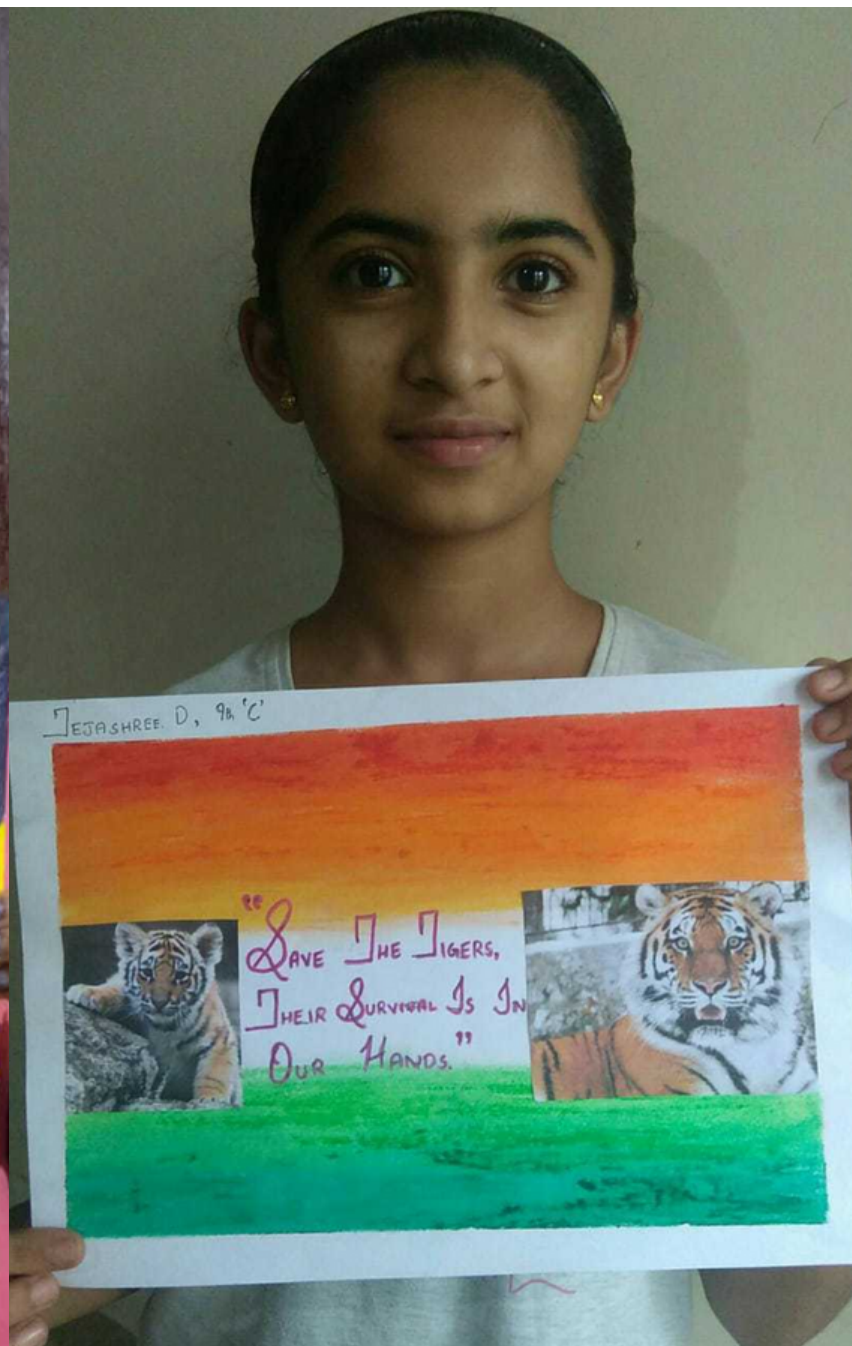 TEJASHREE. D, 9th 'C'
"SAVE THE TIGERS,
THEIR SURVIVAL IS IN
OUR HANDS."